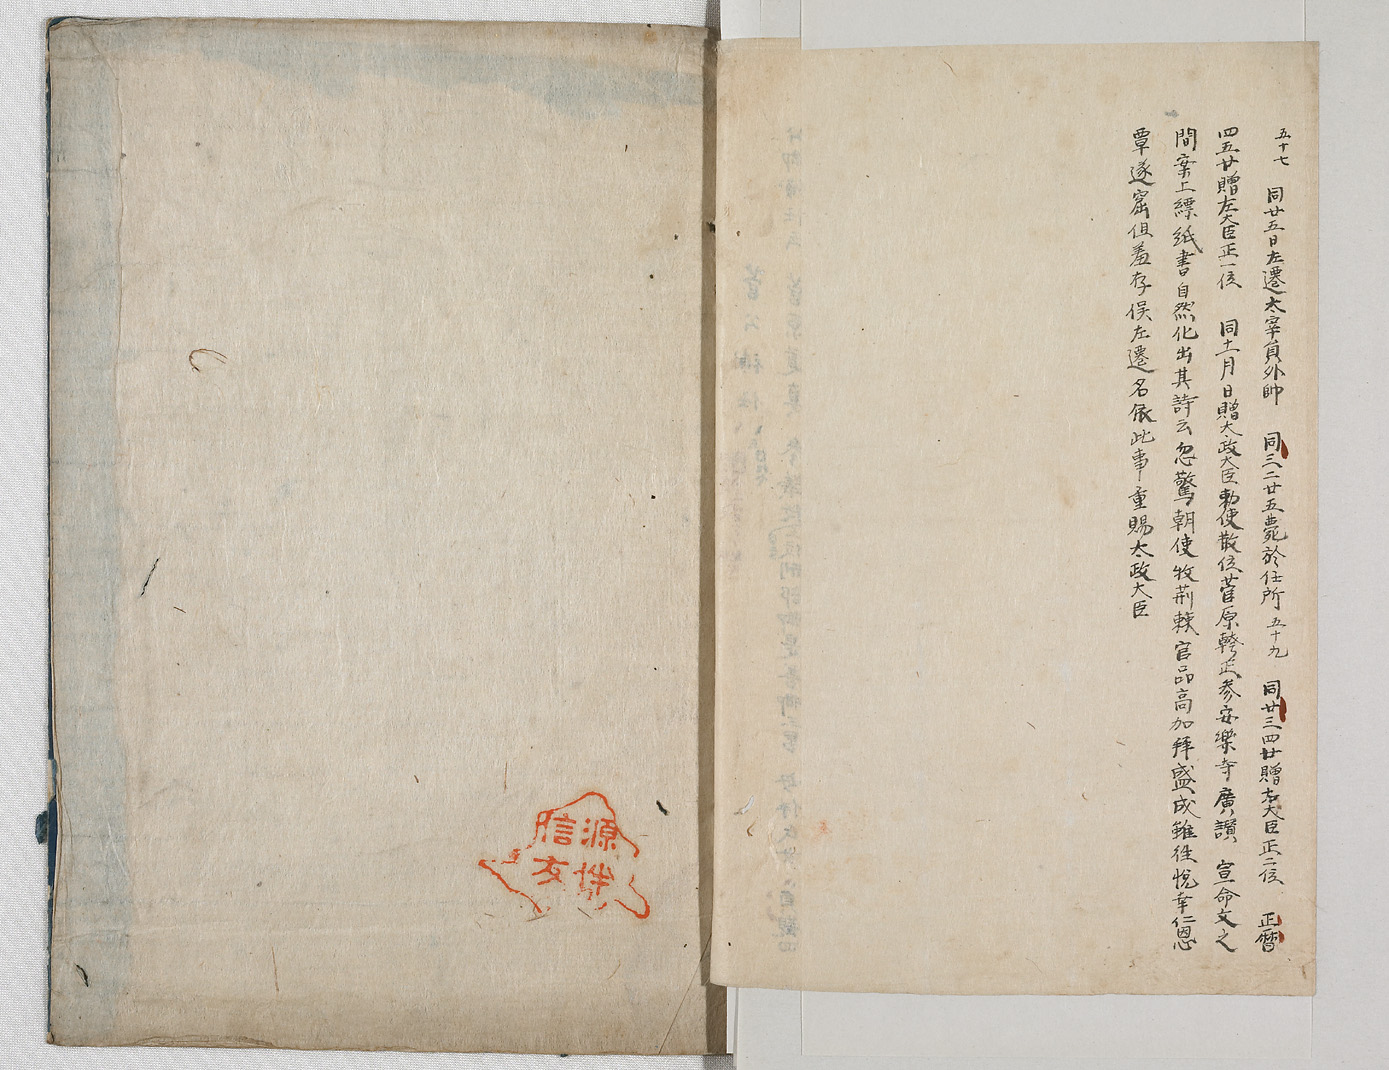 五十七 同廿五日左遷太宰員外帥 同三二廿五薨於任所 五十九 同廿三四廿贈右大臣正二位 正暦
四五廿贈左大臣正一位 同十一月 日贈大政大臣勅使散位菅原幹正参安樂寺廣讃 宣命文之
間案上縹紙書自然化出其詩云忽驚朝使牧荊棘官品高加拜盛成雖徃悦幸仁恩
覃遂窟但羞存俣左遷名依此事重賜太政大臣
源伴
信友